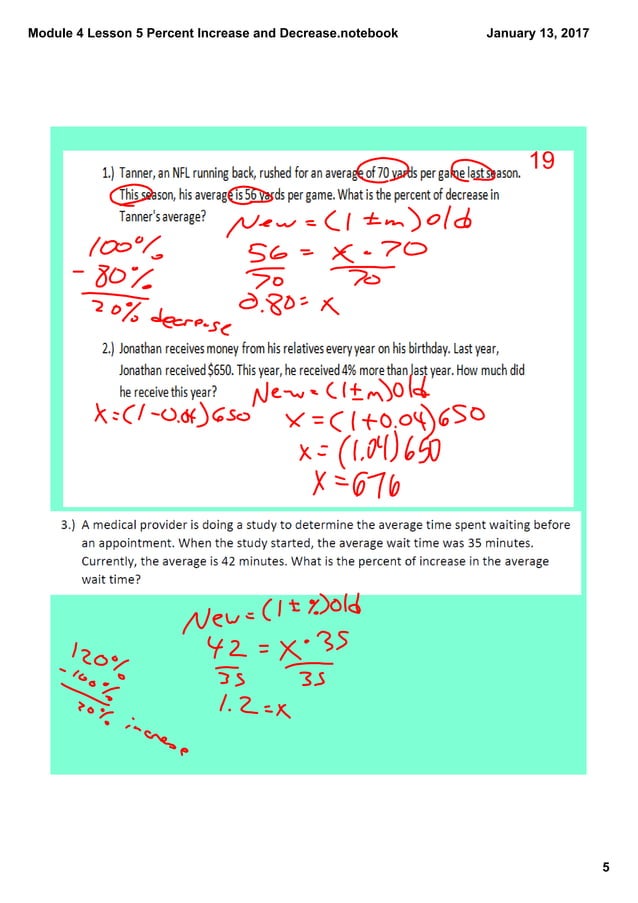 Module 4 Lesson 5 Percent Increase and Decrease.notebook January 13, 2017
19
1.) Tanner, an NFL running back, rushed for an average of 70 yards per game last season.
This season, his average is 56 yards per game. What is the percent of decrease in
Tanner's average?
New = (1 ± m) Old
100%
- 80%
20% decrease
56 = x · 70
70 70
0.80 = x
2.) Jonathan receives money from his relatives every year on his birthday. Last year,
Jonathan received $650. This year, he received 4% more than last year. How much did
he receive this year?
New = (1 ± m) Old
x = (1 - 0.04) 650
x = (1 + 0.04) 650
x = (1.04) 650
x = 676
3.) A medical provider is doing a study to determine the average time spent waiting before
an appointment. When the study started, the average wait time was 35 minutes.
Currently, the average is 42 minutes. What is the percent of increase in the average
wait time?
New = (1 ± %) Old
42 = x · 35
35 35
1.2 = x
120%
- 100%
20% increase
5